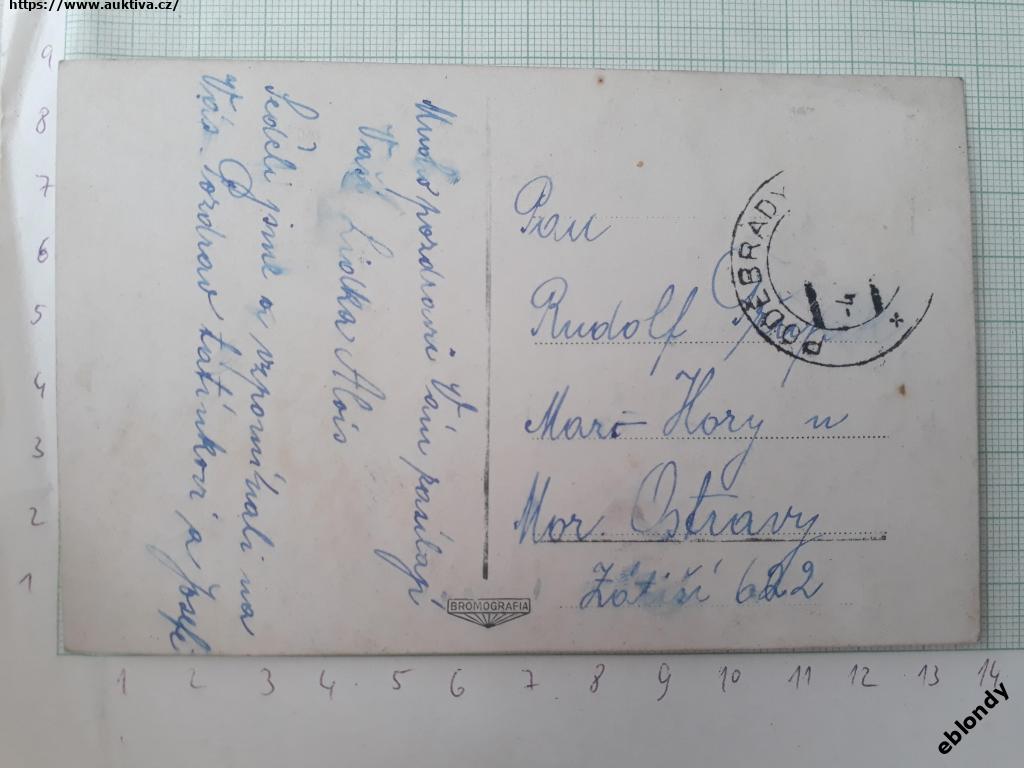 https://www.auktiva.cz/
Mnoho pozdravů Vám
Vaši Lidka Alois
Seděli jsme a vzpomínali na
Vás. Pozdrav tatínkovi a
Pan
Rudolf
Mar. Hory u
Mor. Ostravy
Zátiší 622
PODĚBRADY
BROMOGRAFIA
9
8
7
6
5
4
3
2
1
1 2 3 4 5 6 7 8 9 10 11 12 13 14
eblondy